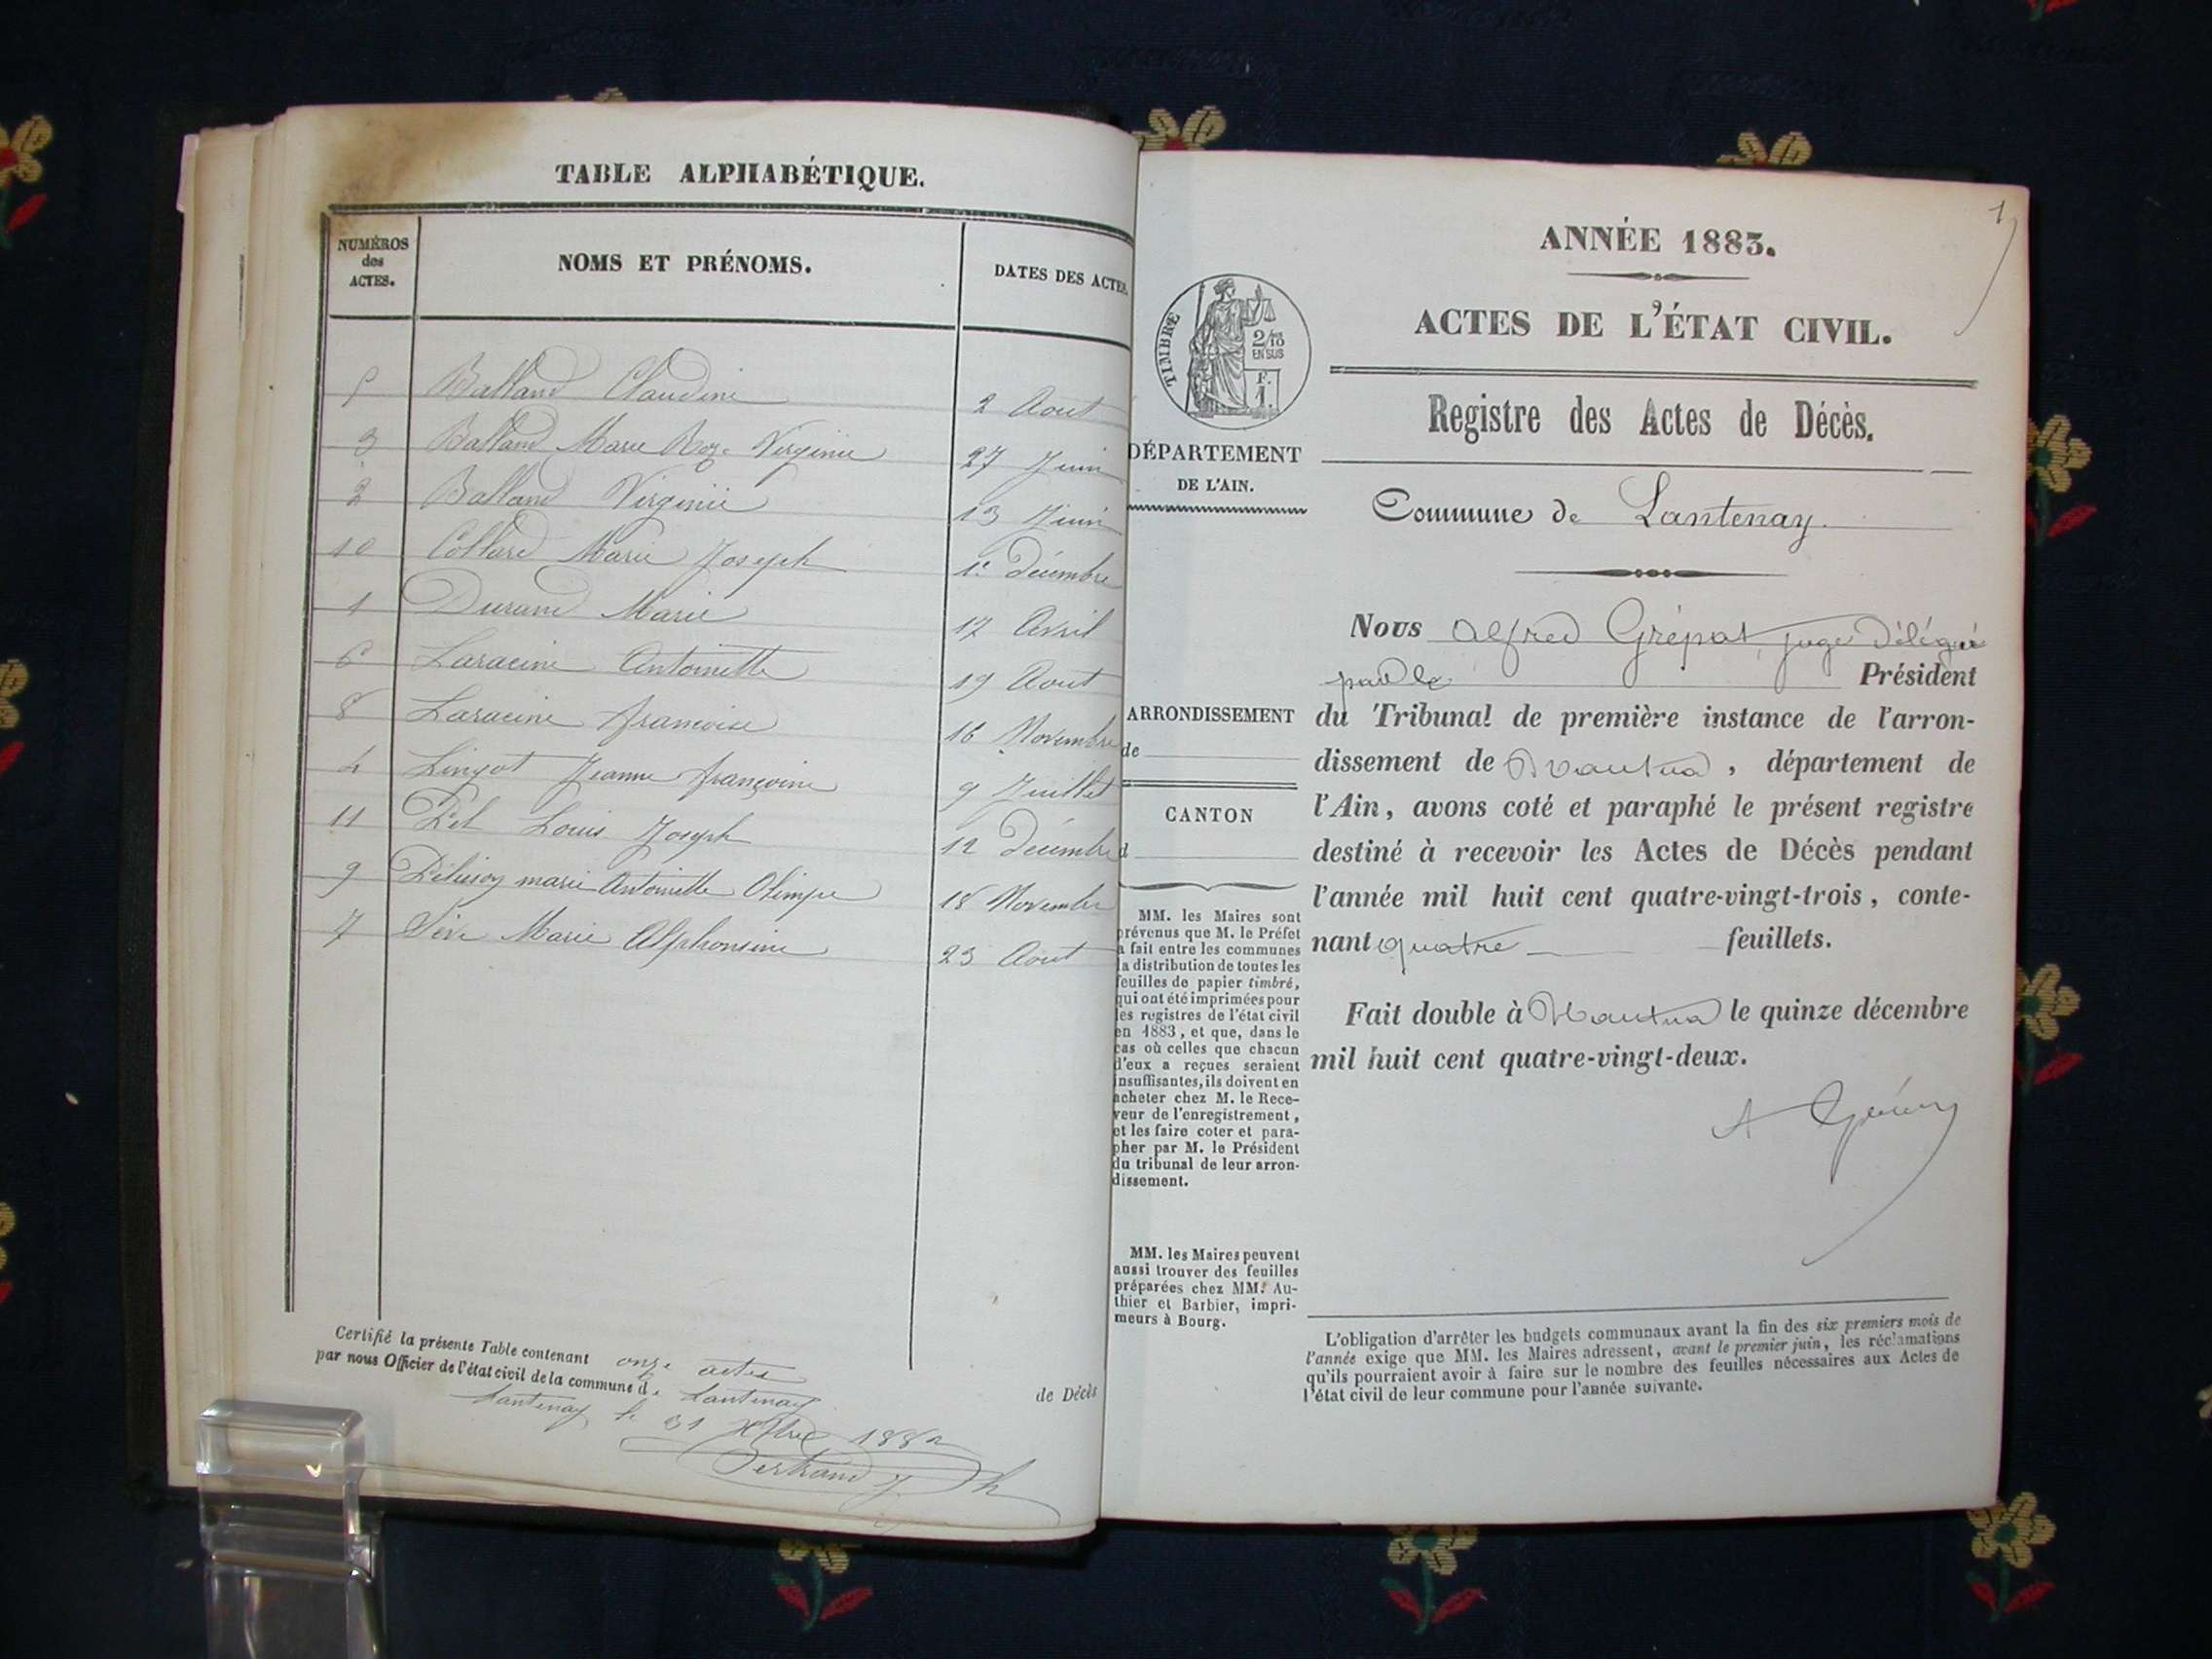 TABLE ALPHABÉTIQUE.
NUMÉROS
des
ACTES.
NOMS ET PRÉNOMS.
DATES DES ACTES.
5 Balland Claudine 2 Aout
3 Balland Marie Roze Virginie 27 Juin
2 Balland Virginie 13 Juin
10 Collard Marie Joseph 1er Décembre
1 Durand Marie 17 Avril
6 Laracine Antoinette 19 Aout
8 Laracine françoise 16 Novembre
4 Lingot Jeanne françoise 9 Juillet
11 Pel Louis Joseph 12 Décembre
9 marie Antoinette Olimpe 18 Novembre
7 Sève Marie Alphonsine 23 Aout
Certifié la présente Table contenant onze actes de Décès
par nous Officier de l'état civil de la commune de Lantenay
Lantenay le 31 Xbre 1882
ANNÉE 1883.
1
ACTES DE L'ÉTAT CIVIL.
TIMBRE
2/10
EN SUS
F.
1.
Registre des Actes de Décès.
DÉPARTEMENT
DE L'AIN.
Commune de Lantenay.
Nous Alfred Grépat, juge délégué
par le Président
du Tribunal de première instance de l'arron-
dissement de Nantua, département de
l'Ain, avons coté et paraphé le présent registre
destiné à recevoir les Actes de Décès pendant
l'année mil huit cent quatre-vingt-trois, conte-
nant quatre feuillets.
Fait double à Nantua le quinze décembre
mil huit cent quatre-vingt-deux.
ARRONDISSEMENT
de
CANTON
d
MM. les Maires sont
prévenus que M. le Préfet
a fait entre les communes
la distribution de toutes les
feuilles de papier timbré,
qui ont été imprimées pour
les registres de l'état civil
en 1883, et que, dans le
cas où celles que chacun
d'eux a reçues seraient
insuffisantes, ils doivent en
acheter chez M. le Rece-
veur de l'enregistrement,
et les faire coter et para-
pher par M. le Président
du tribunal de leur arron-
dissement.
MM. les Maires peuvent
aussi trouver des feuilles
préparées chez MM. Au-
thier et Barbier, impri-
meurs à Bourg.
L'obligation d'arrêter les budgets communaux avant la fin des six premiers mois de
l'année exige que MM. les Maires adressent, avant le premier juin, les réclamations
qu'ils pourraient avoir à faire sur le nombre des feuilles nécessaires aux Actes de
l'état civil de leur commune pour l'année suivante.